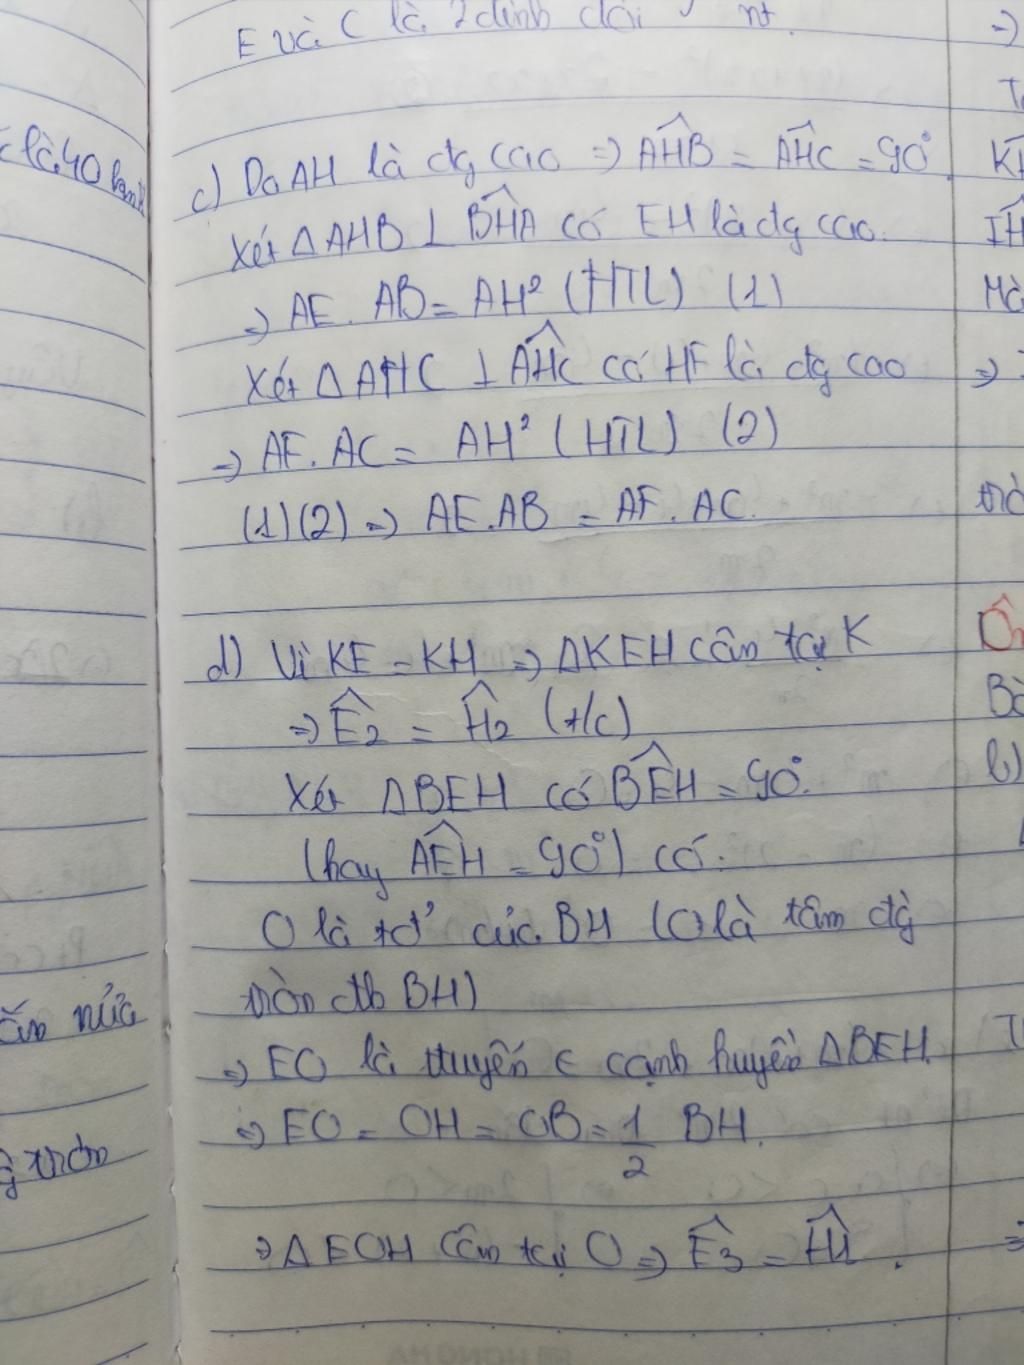 E và C là 2 đỉnh đối nt.
c là 40
c) Do AH là đg cao => AHB = AHC = 90°
Xét ΔAHB ⊥ BHA có EH là đg cao.
=> AE. AB = AH² (HTL) (1)
Xét ΔAHC ⊥ AHC có HF là đg cao
=> AF. AC = AH² (HTL) (2)
(1)(2) => AE.AB = AF. AC.
d) Vì KE = KH => ΔKEH cân tại K
=> Ê₂ = Ĥ₂ (t/c)
Xét ΔBEH có BÊH = 90°.
(hay AÊH = 90°) có.
O là tđ' của BH (O là tâm đg
tròn đk BH)
=> EO là ttuyến ∈ cạnh huyền ΔBEH.
=> EO = OH = OB = 1/2 BH.
=> ΔEOH cân tại O => Ê₃ = Ĥ₁.
nửa
tròn
=>
=>
b)
=>